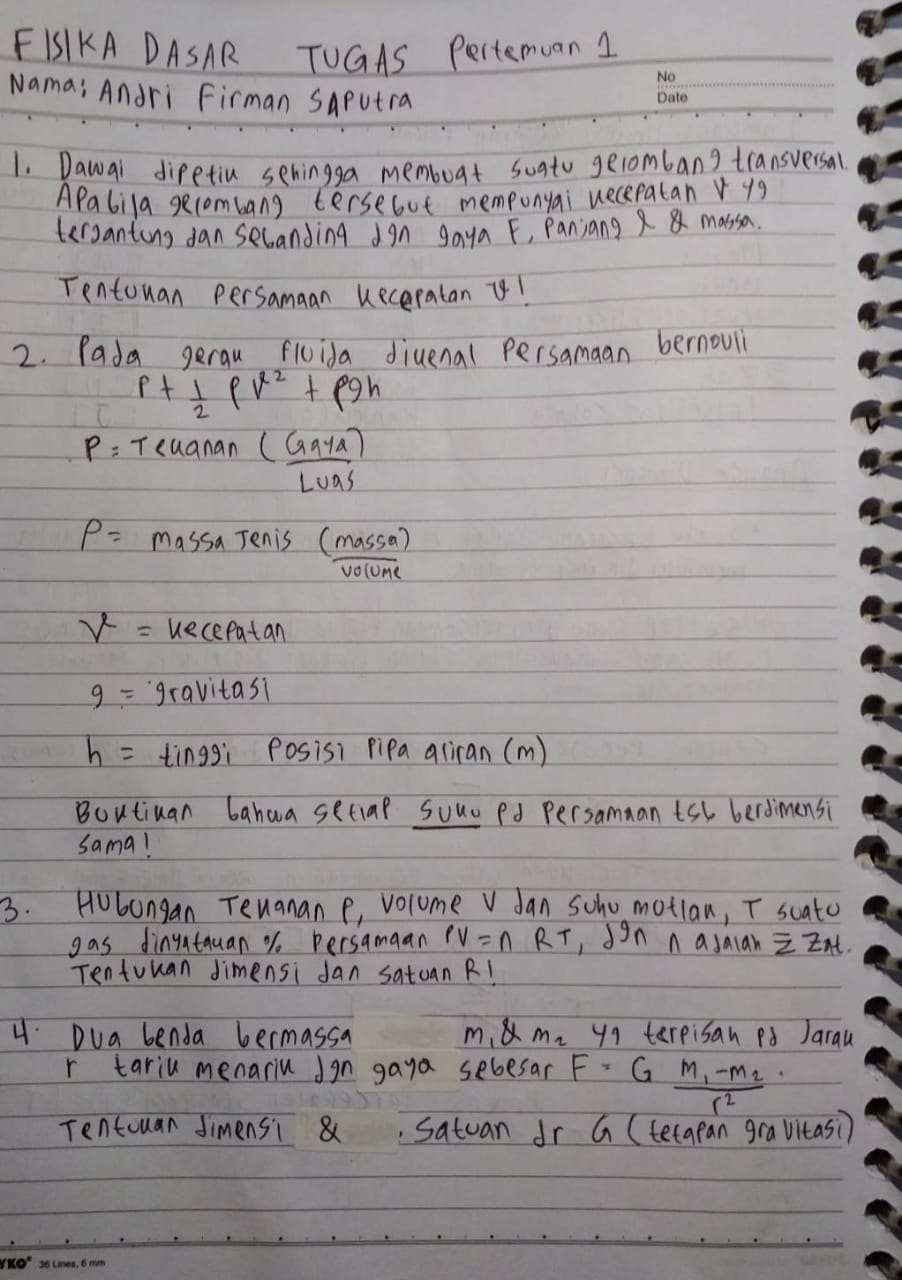 FISIKA DASAR TUGAS Pertemuan 1
Nama: Andri Firman Saputra
No
Date
1. Dawai dipetik sehingga membuat suatu gelombang transversal.
Apabila gelombang tersebut mempunyai kecepatan v yg
tergantung dan sebanding dgn gaya F, panjang λ & massa.
Tentukan persamaan kecepatan v!
2. Pada gerak fluida dikenal persamaan bernouli
P + 1/2 ρv² + ρgh
P = Tekanan (Gaya)
Luas
ρ = massa jenis (massa)
volume
v = kecepatan
g = gravitasi
h = tinggi posisi pipa aliran (m)
Buktikan bahwa setiap suku pd persamaan tsb berdimensi
sama!
3. Hubungan Tekanan P, volume V dan suhu motlak, T suatu
gas dinyatakan % persamaan PV = n RT, dgn n adalah Σ Zat.
Tentukan dimensi dan satuan R!
4. Dua benda bermassa m₁ & m₂ yg terpisah pd Jarak
r tarik menarik dgn gaya sebesar F = G m₁-m₂.
r²
Tentukan dimensi & . satuan dr G (tetapan gravitasi)
YKO® 36 Lines, 6 mm